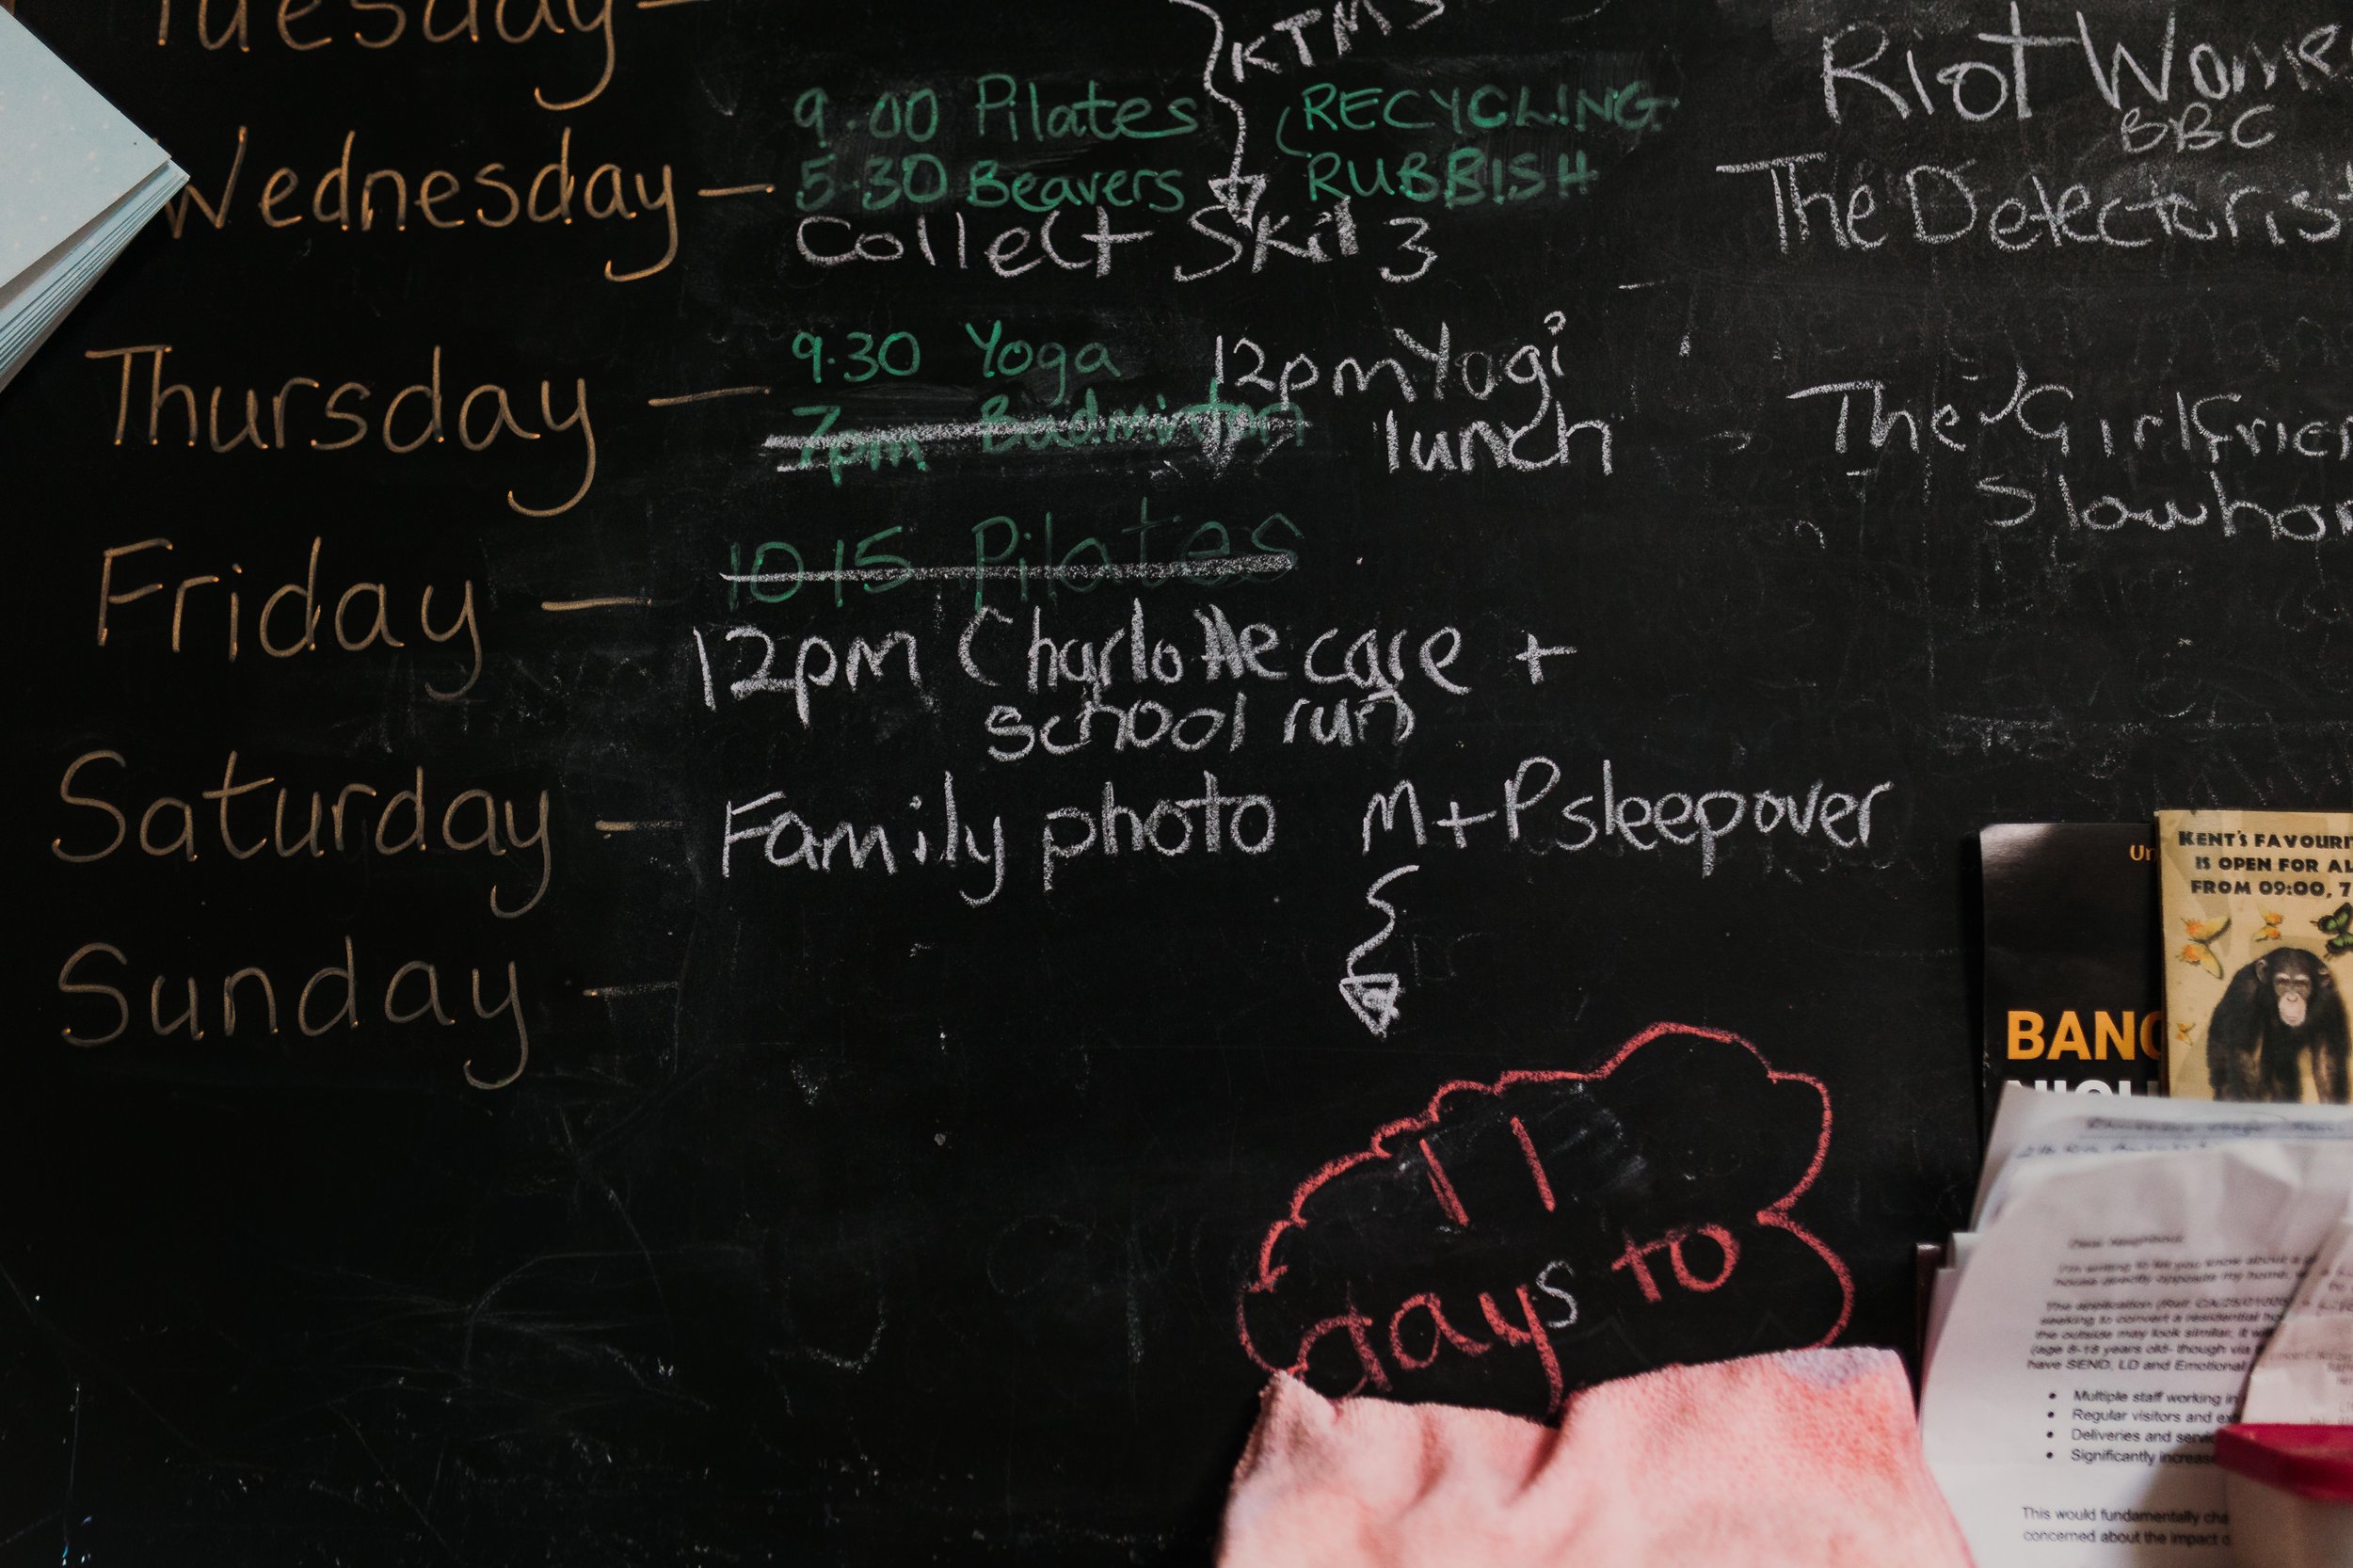 Tuesday —
KTMs
Wednesday — 9.00 Pilates
5.30 Beavers
RECYCLING
RUBBISH
Collect Skil 3
Thursday — 9.30 Yoga
7pm Badminton
12pm Yogi
lunch
Friday — 10.15 Pilates
12pm Charlotte care +
school run
Saturday — Family photo M+P sleepover
Sunday —
11
days to
Riot Wome
BBC
The Detectorist
The Girlfrien
Slowhor
KENT'S FAVOURI
IS OPEN FOR AL
FROM 09:00, 7
BANG
Dear Neighbour
I'm writing to let you know about a
house directly opposite my home,
The application
seeking to convert a residential ho
the outside may look similar, it wi
(age 8-18 years old- though via
have SEND, LD and Emotional
• Multiple staff working in
• Regular visitors and ex
• Deliveries and servic
• Significantly increase
This would fundamentally cha
concerned about the impact o